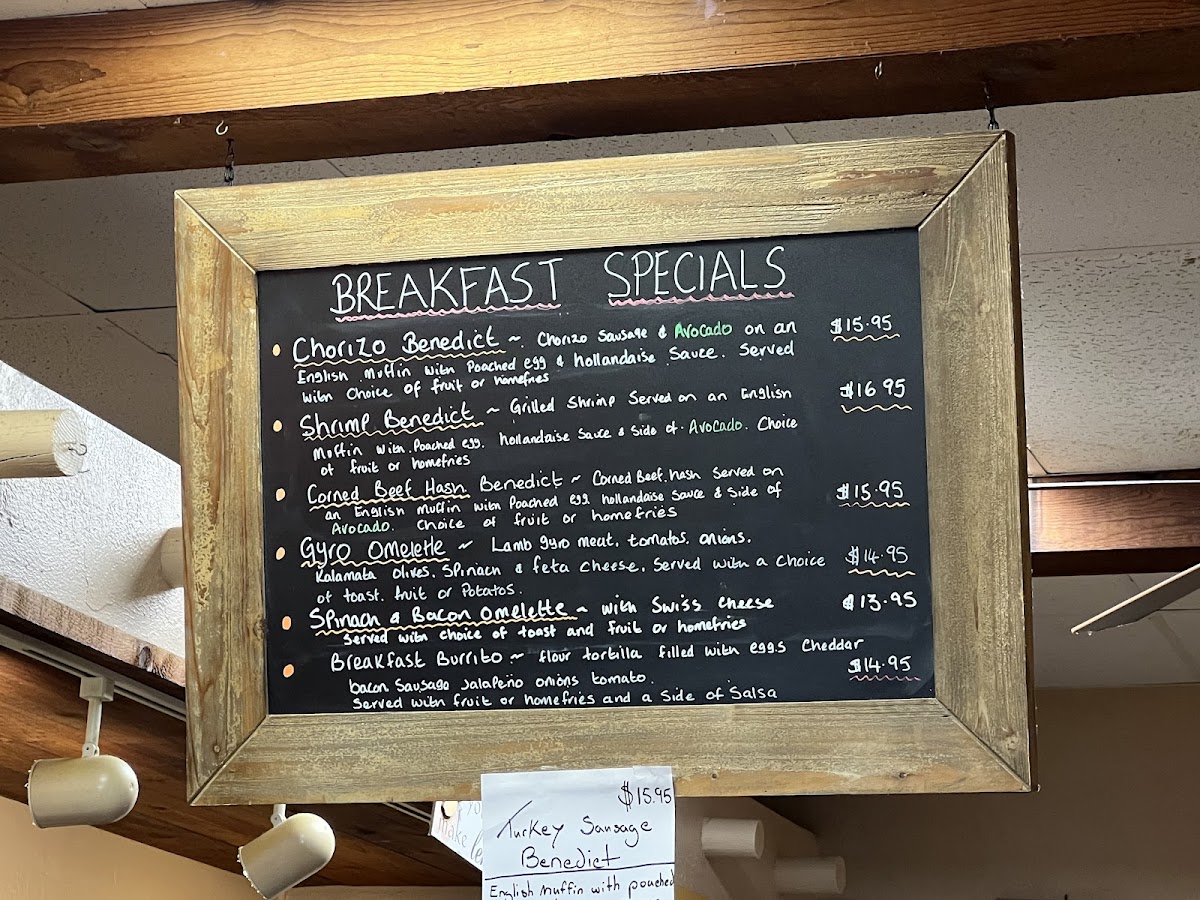 BREAKFAST SPECIALS
Chorizo Benedict ~ Chorizo Sausage & Avocado on an $15.95
English Muffin with Poached egg & Hollandaise Sauce. Served
with Choice of fruit or homefries
Shrimp Benedict ~ Grilled Shrimp Served on an English $16.95
Muffin with Poached egg. hollandaise Sauce & Side of Avocado. Choice
of fruit or homefries
Corned Beef Hash Benedict ~ Corned Beef hash Served on $15.95
an English Muffin with Poached egg hollandaise Sauce & Side of
Avocado. Choice of fruit or homefries
Gyro Omelette ~ Lamb gyro meat, tomatos, onions,
Kalamata Olives, Spinach & feta Cheese, Served with a Choice $14.95
of toast. fruit or Potatos.
Spinach & Bacon Omelette ~ with Swiss Cheese $13.95
Served with choice of toast and fruit or homefries
Breakfast Burrito ~ flour tortilla filled with eggs Cheddar
bacon Sausage Jalapeño onions tomato. $14.95
Served with fruit or homefries and a Side of Salsa
$15.95
Turkey Sausage
Benedict
English Muffin with poached
make